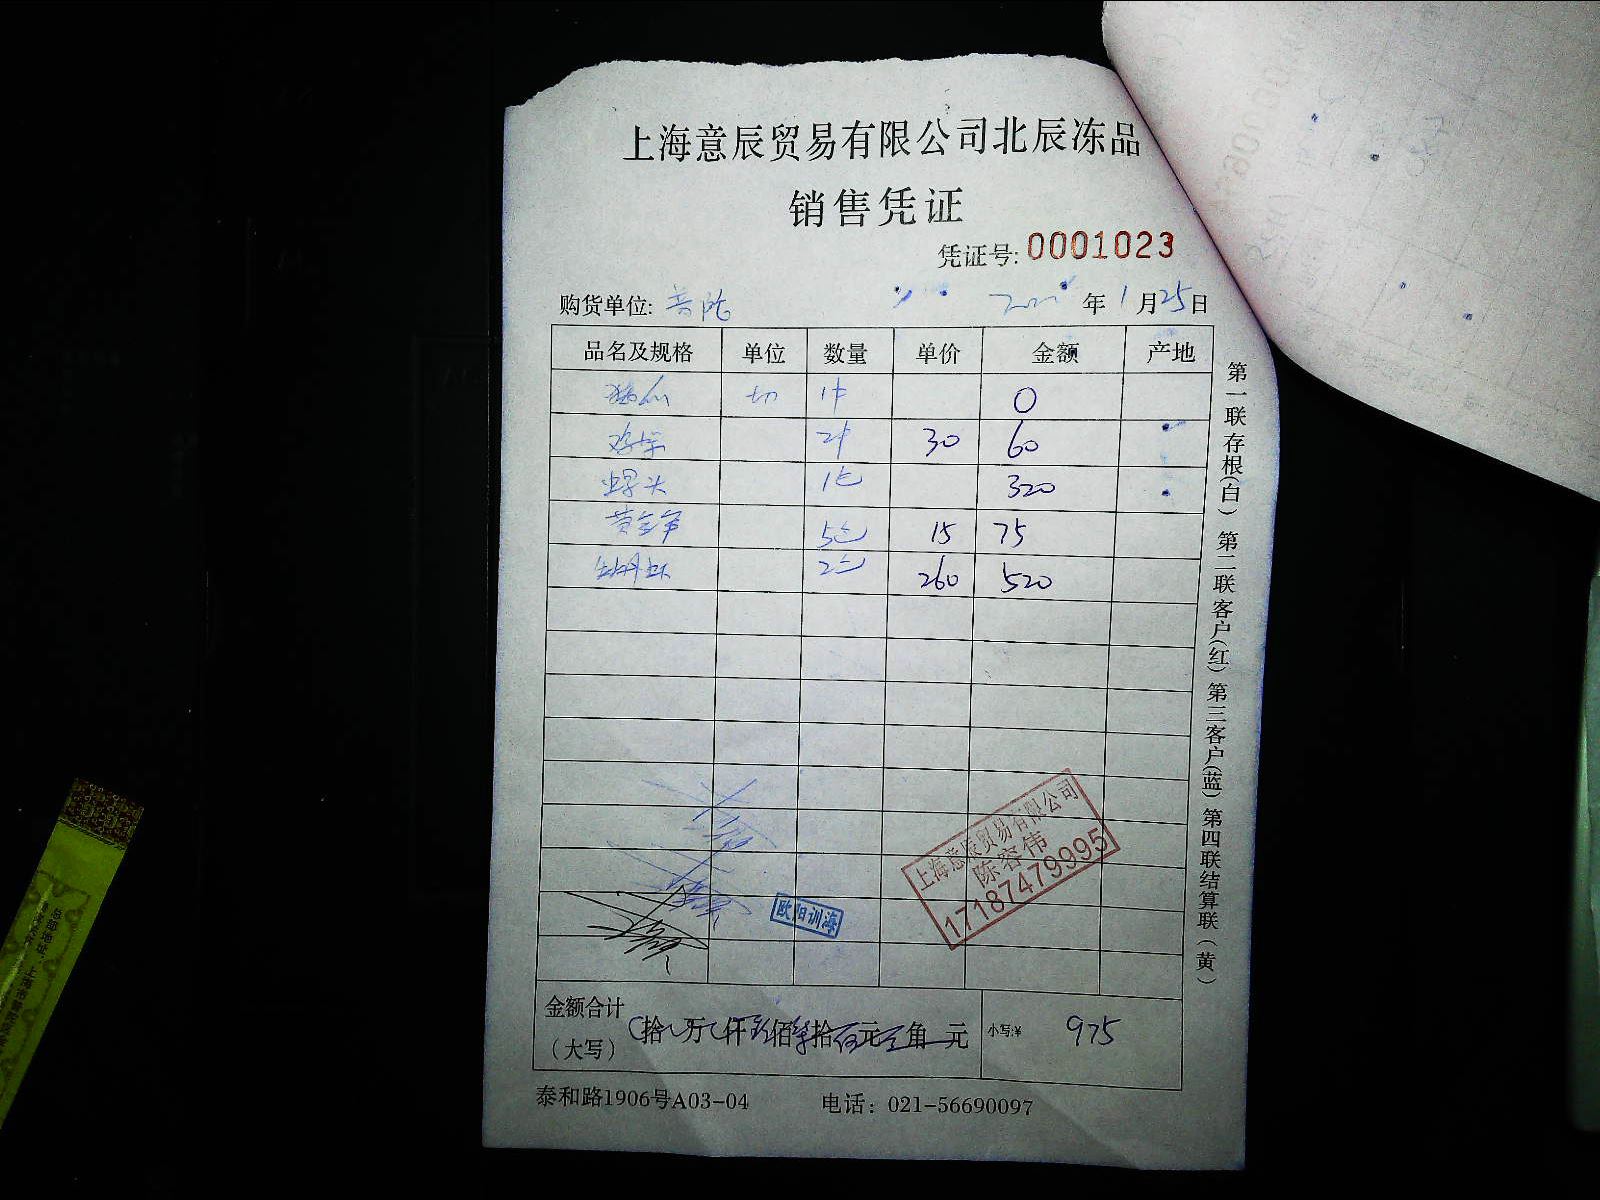 上海意辰贸易有限公司北辰冻品
销售凭证
凭证号: 0001023
购货单位: 普陀 年 1 月 25 日
品名及规格 单位 数量 单价 金额 产地
切 1件 0
2件 30 60
螺头 1包 320
5包 15 75
2包 260 520
上海意辰贸易有限公司
陈容伟
17187479995
欧阳训海
金额合计
(大写) 拾 万 仟 玖 佰 柒 拾 伍 元 角 元 小写:¥ 975
泰和路1906号A03-04 电话: 021-56690097
第一联存根(白) 第二联客户(红) 第三客户(蓝) 第四联结算联(黄)